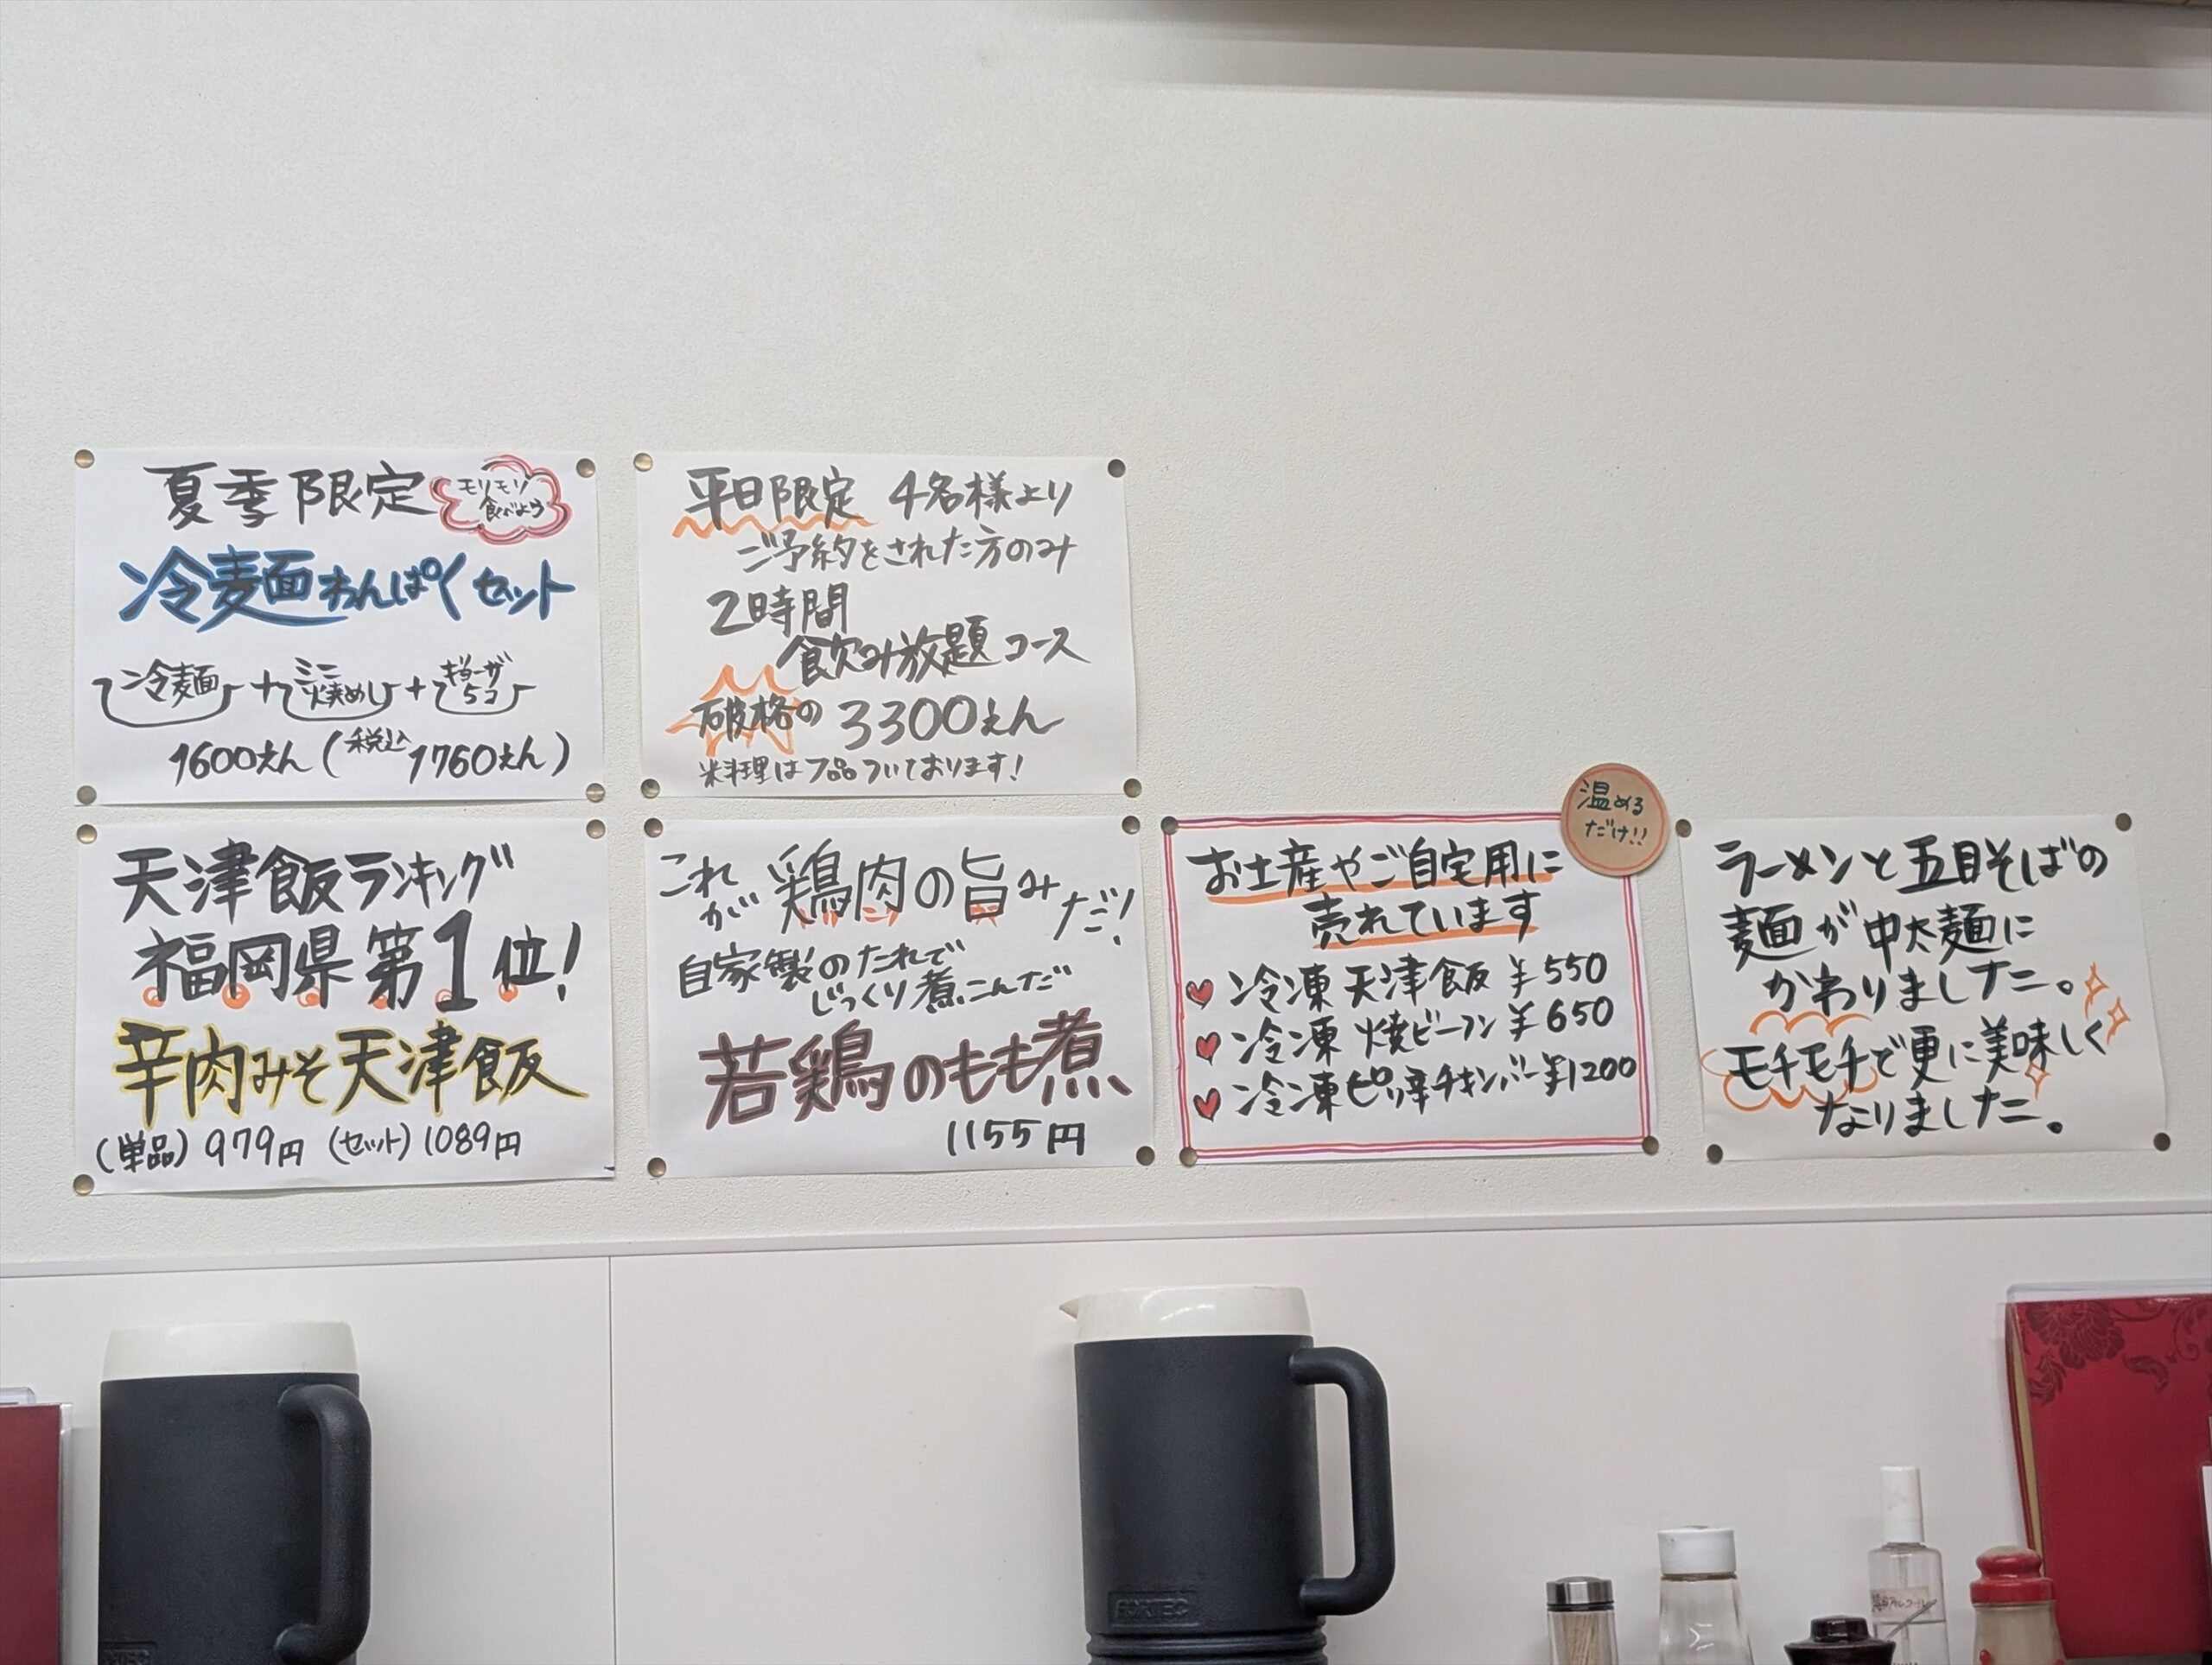 夏季限定
モリモリ
食べよう
冷麦面わんぱくセット
冷麦面 + ミニ焼めし + ギョーザ5コ
1600えん(税込1760えん)
平日限定 4名様より
ご予約をされた方のみ
2時間
飲み放題コース
破格の3300えん
※料理は7品ついております!
天津飯ランキング
福岡県第1位!
辛肉みそ天津飯
(単品)979円 (セット)1089円
これが鶏肉の旨みだ!
自家製のたれで
じっくり煮こんだ
若鶏のもも煮
1155円
温める
だけ!!
お土産やご自宅用に
売れています
♥冷凍 天津飯 ¥550
♥冷凍 焼ビーフン ¥650
♥冷凍ピリ辛チキンバー¥1200
ラーメンと五目そばの
麺が中太麺に
かわりました。
モチモチで更に美味しく
なりました。
FORTEC